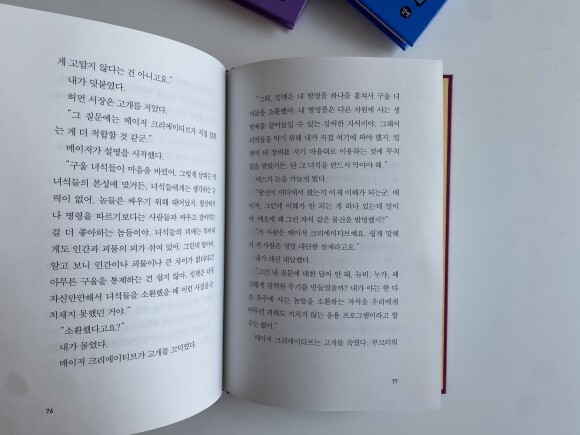 게 고맙지 않다는 건 아니고요."
내가 덧붙였다.
허먼 서장은 고개를 저었다.
"그 질문에는 메이저 크리에이티브가 직접 답하
는 게 더 적합할 것 같군."
메이저가 설명을 시작했다.
"구울 녀석들이 마음을 바꿨어. 그렇게
녀석들의 본성에 맞거든. 녀석들에게는 생각하는 능
력이 없어. 놈들은 싸우기 위해 태어났지. 함장에서
나 명령을 따르기보다는 사람들과 싸우고 잡아먹는
걸 더 좋아하는 놈들이야. 녀석들의 피에는 특이하
게도 인간과 괴물의 피가 섞여 있어. 그런데 말이야,
알고 보니 인간이나 괴물이나 큰 차이가 없더라고.
아무튼 구울을 통제하는 건 쉽지 않아. 킹펫은 너무
자신만만해서 녀석들을 소환했을 때 이런 사실을 눈
치채지 못했던 거야."
"소환했다고요?"
내가 물었다.
메이저 크리에이티브가 고개를 끄덕였다.
76
"그래. 킹펫은 내 발명품 하나를 훔쳐서 구울 녀
석들을 소환했어. 내 발명품은 다른 차원에 사는 생
명체를 끌어들일 수 있는 강력한 자석이야. 그래서
녀석들을 막기 위해 내가 직접 여기에 와야 했지. 킹
펫이 내 장비를 자기 마음대로 이용하는 것에 무척
열을 받았거든. 난 그 녀석을 반드시 막아야 해."
덱스가 눈을 가늘게 떴다.
"당신이 어디에서 왔는지 이제 이해가 되는군, 메
이저. 그런데 이해가 안 되는 게 하나 있는데 말이
야, 애초에 왜 그런 자석 같은 물건을 발명했지?"
"저 사람은 메이저 크리에이티브예요. 쉽게 말해
서 저 사람은 정말 대단한 천재라고요."
내가 대신 대답했다.
"그건 내 질문에 대한 답이 안 돼, 뉴비. 누가, 왜
그렇게 강력한 무기를 만들었을까? 내가 아는 한 다
른 우주에 사는 놈들을 소환하는 자석을 우리에게
아무런 피해도 끼치지 않는 응용 프로그램이라고 할
수는 없어."
메이저 크리에이티브는 고개를 숙였다. 부끄러워
77